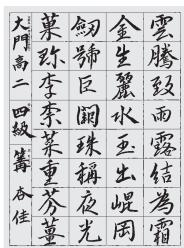 雲騰致雨露結為霜
金生麗水玉出崐岡
劒號巨闕珠稱夜光
菓珍李柰菜重芬薑
大門高二 四級 篝杏佳